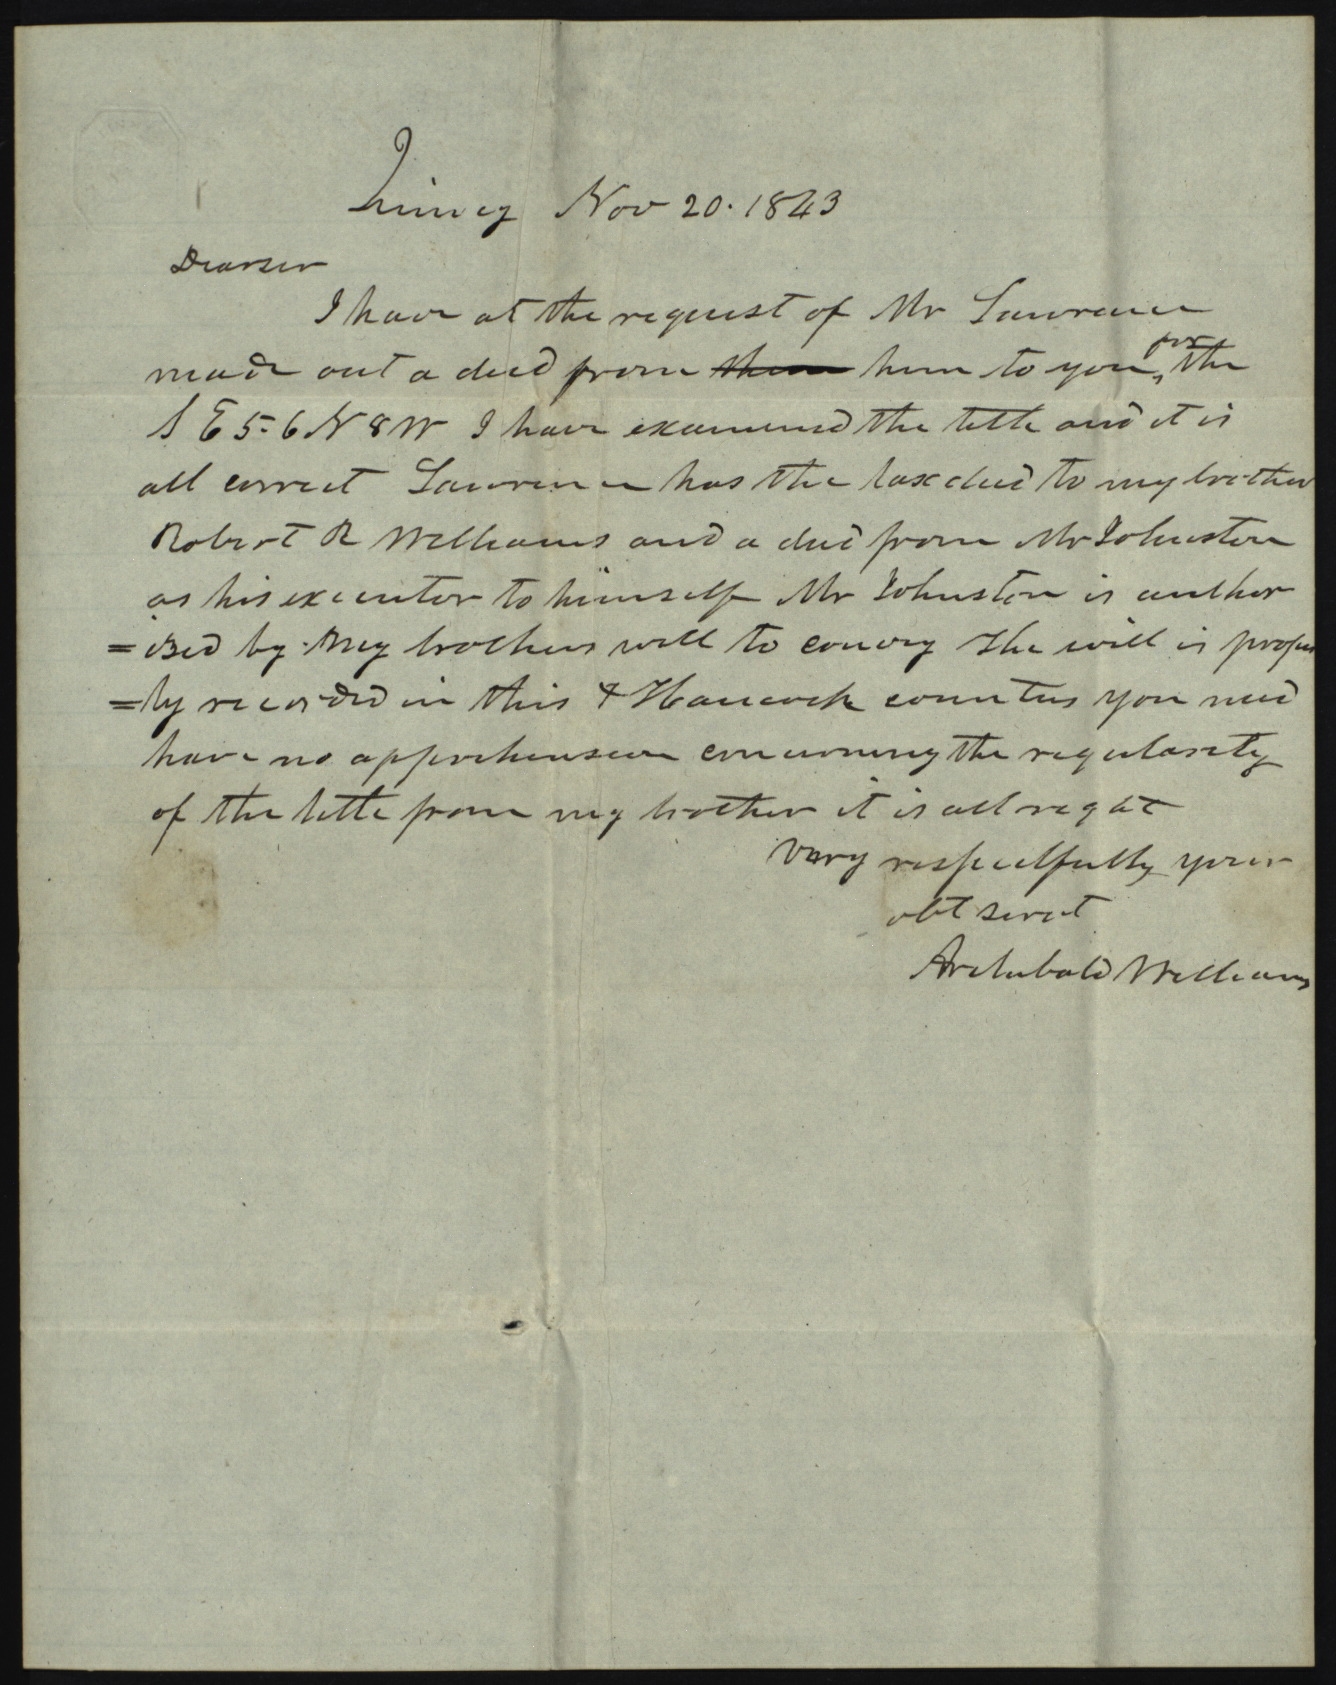 Quincy Nov 20. 1843
Dear sir
I have at the request of Mr Lawrence
made out a deed from them him to you, for the
S E 5. 6 N 8 W I have examined the title and it is
all correct Lawrence has the tax deed to my brother
Robert R Williams and a deed from Mr Johnston
as his executor to himself Mr Johnston is author
=ised by my brothers will to convey The will is proper
=ly recorded in this & Hancock counties you need
have no apprehension concerning the regularity
of the title from my brother it is all right
Very respectfully your
obt servt
Archibald Williams